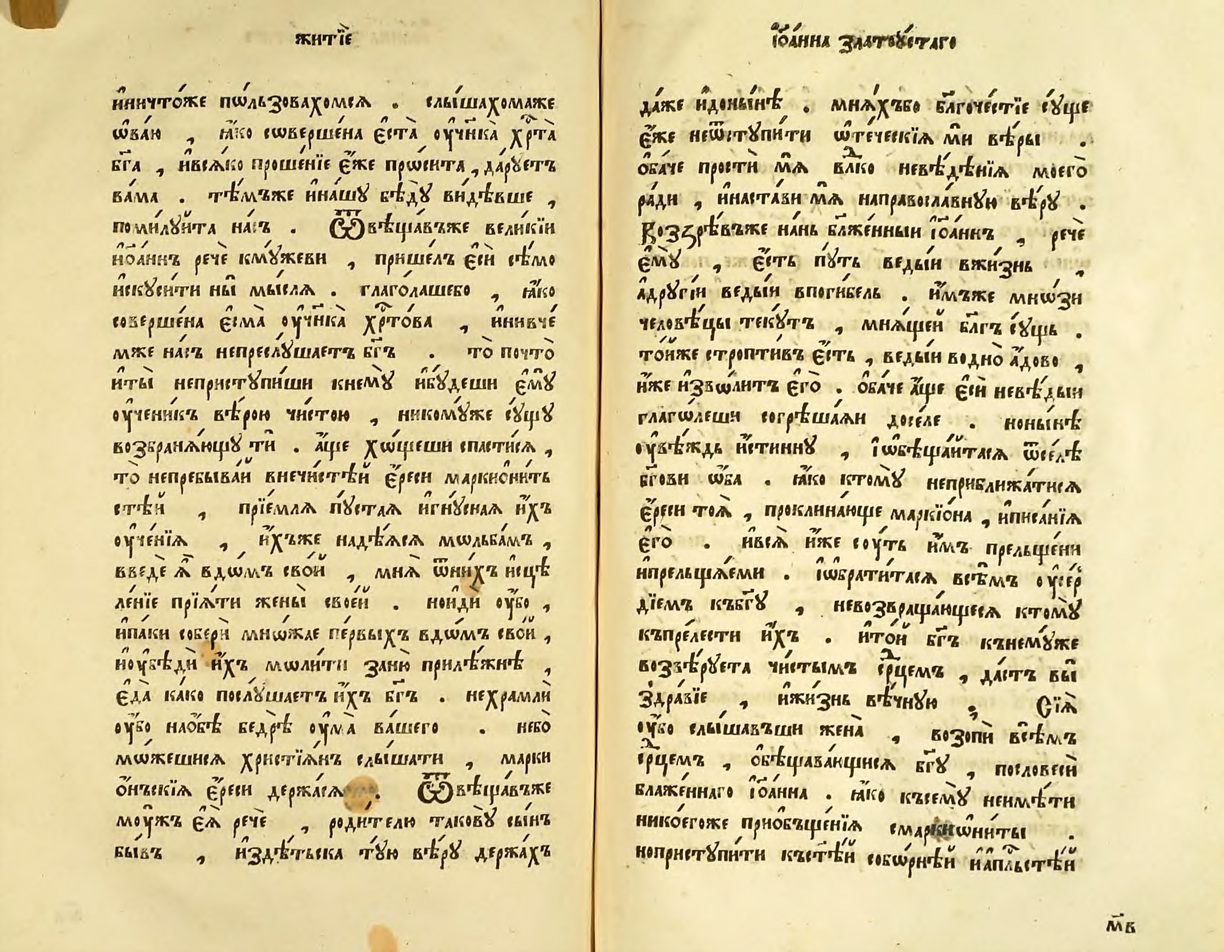 житїе
ѝничто́же пѡ́льзовахомсѧ . слы́шахомаже
ѡ҆ва́ю , ꙗ҆́ко сѡвершє́на є҆ста̀ оу҆чн҃ка̀ хрⷭ҇та̀
бг҃а , ѝвсѧ́ко проше́нїе є҆́же прѡ́сита , да́рꙋетъ
ва́ма . тѣ́мъже ѝна́шꙋ бѣдꙋ̀ ви́дѣвше ,
поми́лꙋйта на́съ . Ѿвѣща́въже вели́кїи
ї҆ѡ́аннъ речѐ кмꙋ́жеви , пришє́лъ є҆сѝ сѣ́мо
и҆скꙋси́ти ны̀ мы́слѧ . глаго́лашебо , ꙗ҆́ко
совершє́на є҆сма̀ оу҆чн҃ка̀ хрⷭ҇то́ва , ѝнивче́
мже на́съ непреслꙋ́шаетъ бг҃ъ . то̀ почто̀
ѝты̀ непристꙋ́пиши кнемꙋ̀ ѝбꙋ́деши є҆мꙋ̀
оу҆чени́къ вѣ́рою чи́стою , никомꙋ́же сꙋ́щꙋ
возбранѧ́ющꙋ тѝ . а҆́ще хѡ́щеши спасти́сѧ ,
то̀ непребыва́й внечи́стѣй є҆́реси маркиѡни́тъ
стѣ́й , прїе́млѧ пꙋста́ѧ ѝгнꙋ́снаѧ и҆́хъ
оу҆че́нїѧ , и҆́хъже надѣ́ѧсѧ мѡльба́мъ ,
введѐ ѧ҆̀ вдо́мъ сво́й , мнѧ̀ ѿни́хъ и҆сцѣ
ле́нїе прїѧ́ти жены̀ своеѧ̀ . ноидѝ оу҆́бо ,
ѝпа́ки соберѝ мнѡ́жае пе́рвыхъ вдо́мъ сво́й ,
ѝоувѣдѝ и҆́хъ мѡли́ти заню̀ прилѣ́жнѣ ,
є҆да̀ ка́ко послꙋ́шаетъ и҆́хъ бг҃ъ . нехрамлѝ
оу҆́бо нао́бѣ бедрѣ̀ оу҆ма̀ ва́шего . небо̀
мѡ́жешисѧ христїѧ́нъ слы́шати , марки
ѡ҆́нъскїѧ є҆́реси держа́сѧ . Ѿвѣща́въже
мо́ужъ є҆ѧ̀ речѐ , роди́телю такову̀ сы́нъ
бы́въ , и҆здѣ́тьска тꙋ́ю вѣ́рꙋ держа́хъ
ї҆ѡ́анна златоꙋ́стаго
да́же ѝдоны́нѣ . мнѧ́хъбо бл҃гоче́стїе сꙋ́ще
є҆́же неѿстꙋпи́ти ѡ҆те́ческїѧ мѝ вѣ́ры .
ѻ҆ба́че простѝ мѧ̀ влⷣко невѣ́дѣнїѧ моегѡ̀
ра́ди , ѝнаста́ви мѧ̀ направосла́внꙋю вѣ́рꙋ .
Воззрѣ́въже на́нь бл҃же́нныи ї҆ѡ́аннъ , речѐ
є҆мꙋ̀ , є҆́сть пꙋ́ть веды́и вжи́знь ,
а҆дрꙋгі́и веды́и впоги́бель . и҆́мъже мно́зи
человѣ́цы текꙋ́тъ , мнѧ́щей бл҃гъ сꙋ́щь .
то́йже стропти́въ є҆́сть , веды́и водно̀ а҆́дово ,
и҆́же и҆звѡ́литъ є҆го̀ . ѻ҆ба́че а҆́ще є҆сѝ невѣ́дыи
глаго́леши согрѣша́ѧи досе́ле . ноны́нѣ
оу҆вѣ́ждь и҆́стиннꙋ , ї҆ѡ҆бѣща́йтасѧ ѿсе́лѣ
бг҃ови ѡ҆́ба . ꙗ҆́ко ктомꙋ̀ неприближа́тисѧ
є҆́реси то́ѧ , проклина́юще маркїо́на , ѝписа́нїѧ
є҆го̀ . ѝвсѧ̀ и҆́же со́уть и҆́мъ прельще́ни
ѝпрельща́еми . ї҆ѡ҆брати́тасѧ всѣ́мъ оу҆се́р
дїемъ къбг҃ꙋ , невозвраща́ющесѧ ктомꙋ̀
къпре́лести и҆́хъ . ѝто́й бг҃ъ кънемꙋ́же
возвѣ́рꙋета чи́стымъ срⷣцемъ , да́стъ вы̀
здра́вїе , ѝжи́знь вѣ́чнꙋю . Сїѧ̀
оу҆́бо слы́шавъши жена̀ , возопѝ всѣ́мъ
срⷣцемъ , ѻ҆бѣщава́ющисѧ бг҃ꙋ , пословесѝ
блаже́ннаго ї҆ѡ́анна . ꙗ҆́ко къ́семꙋ̀ неимѣ́ти
нико́егоже приобще́нїѧ смаркиѡни́ты .
нопристꙋпи́ти къст҃ѣ́й собѡ́рнѣй ѝа҆пⷭ҇льстѣ́й
м҃в